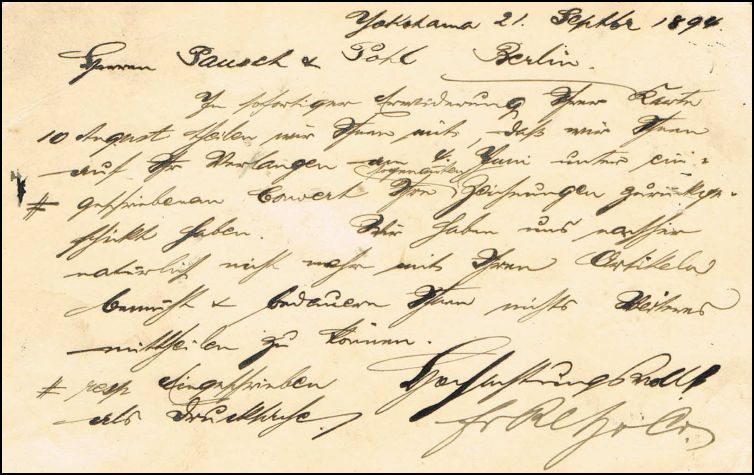 Yokohama 21. Septbr 1894.
Herren Pausch & Pohl Berlin.
In sofortiger Erwiderung Ihrer Karte
10 August theilen wir Ihnen mit, daß wir Ihnen
auf Ihr Verlangen am 4. Juni unter ein-
# geschriebenen Couvert Ihre Zeichnungen zurückge-
schickt haben. Wir haben uns
natürlich nicht mehr mit Ihren Artikeln
bemüht & bedauern Ihnen nichts Weiteres
mittheilen zu können.
# resp eingeschrieben Hochachtungsvoll
als Drucksache.